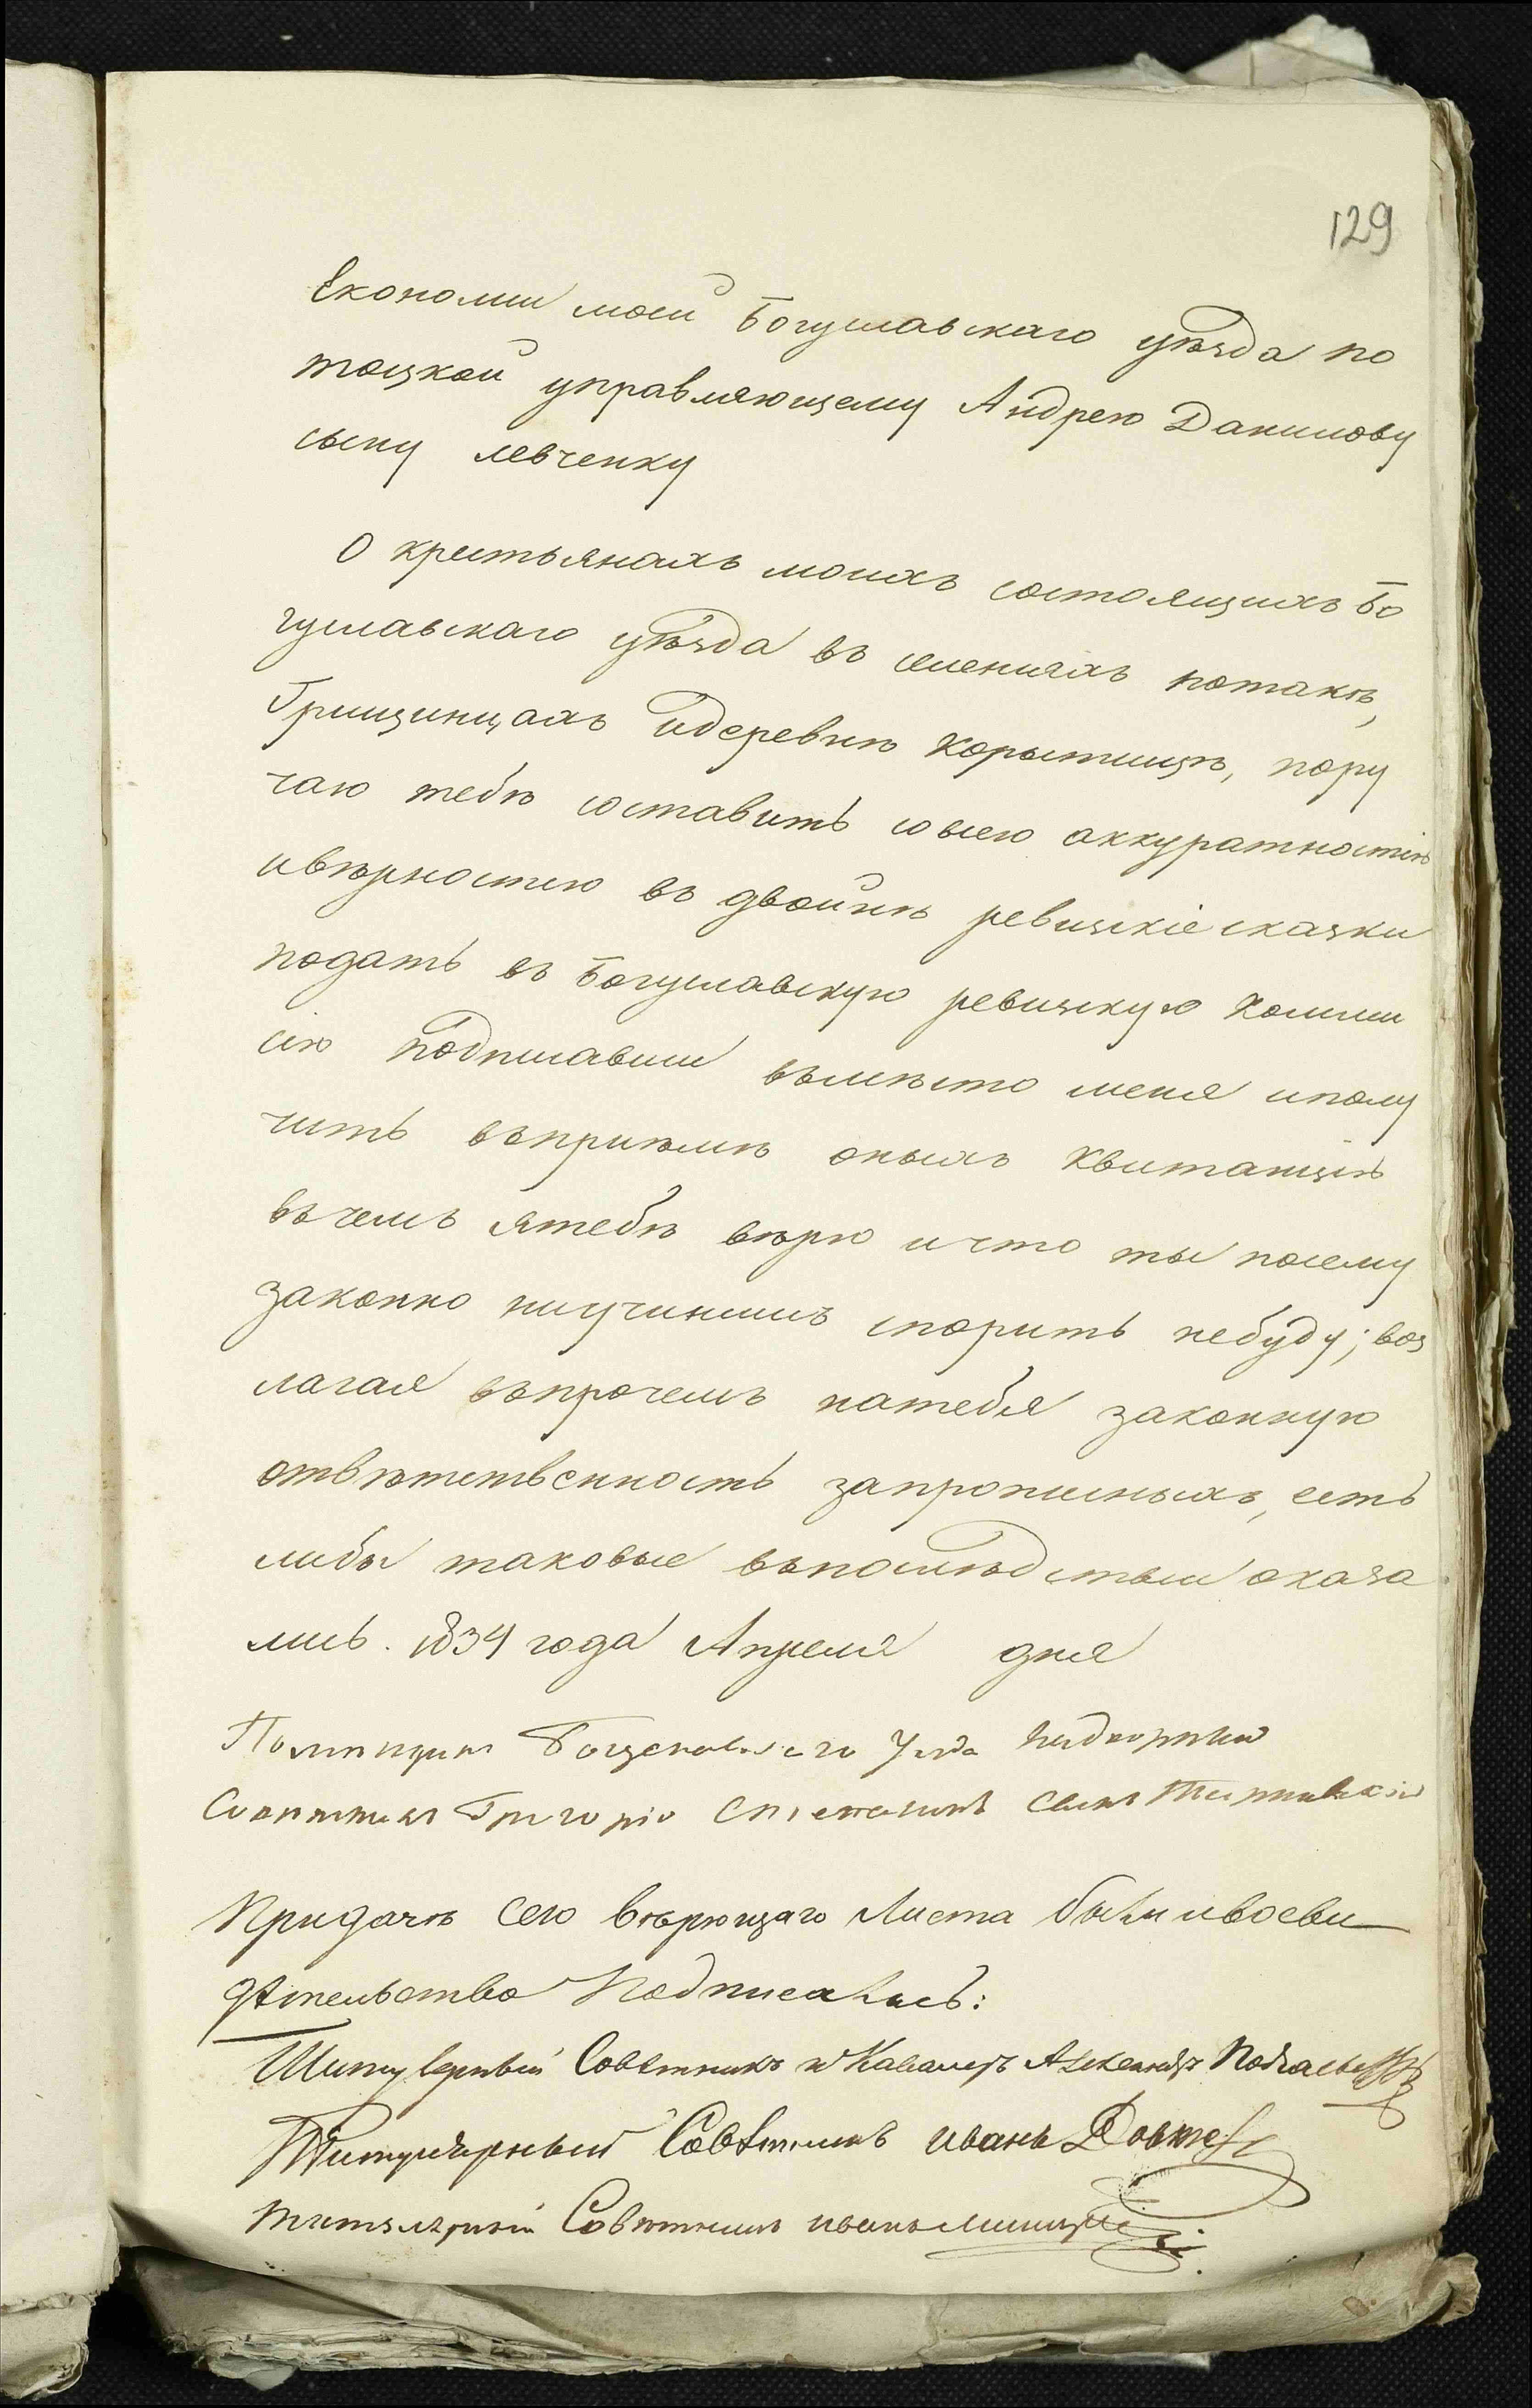 129
Економіи моей Богуславскаго уѣзда по
тоцкой управляющему Андрею Данилову
сыну левченку
О крестьянахъ моихъ состоящихъ Бо
гуславскаго уѣзда въ селеніяхъ потокѣ,
Грищинцахъ идеревнѣ Корытищѣ, пору
чаю тебѣ составить совсею аккуратностію
ивѣрностію въ двойнѣ ревизскіе сказки
подать въ Богуславскую ревизскую Комми
сію подписавши вмѣсто меня иполу
чить въпріѣмѣ оныхъ Квитанцію
въчемъ ятебѣ вѣрю ичто ты посему
законно ниучинишъ спорить небуду; воз
лагая въпрочемъ натебя законную
отвѣтственность запрописныхъ, есть
либы таковые въпослѣдствіи оказа
лись. 1834 года Апреля дня
Помѣщикъ Богуславскаго уезда надворный
Совѣтникъ Григорій Степановъ сынъ
Придачѣ сего вѣрющаго Листа были ивосви
дѣтельство Подписались:
Титулярный Совѣтникъ и Кавалеръ Александръ
Титулярный Совѣтникъ иванъ
титулярный Совѣтникъ иванъ